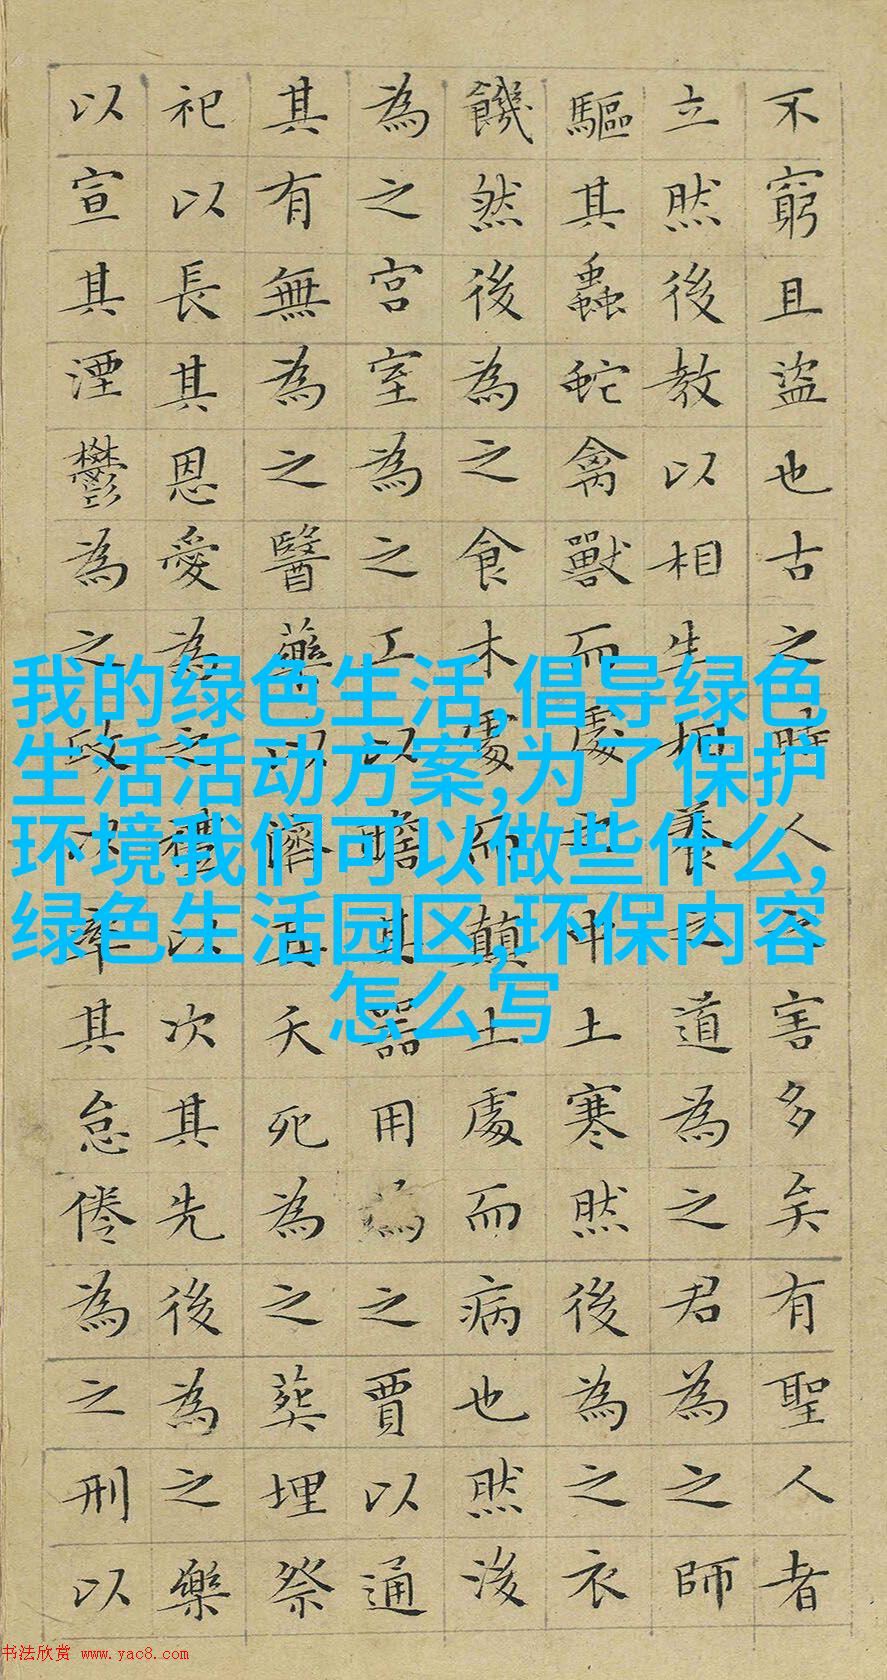 不窮且盜也古之時人之害多矣有聖人者
立然後教以相生相養之道為之君為之師
驅其蟲蛇禽獸而處中土寒然後為之衣
饑然後為之食木處而顛土處而病也然後
為之宮室為之工以贍其器用為之賈以通
其有無為之醫藥以濟其夭死為之葬埋祭
祀以長其恩愛為之禮以次其先後為之樂
以宣其湮鬱為之政以率其怠倦為之刑以
我的绿色生活,倡导绿色
生活活动方案,为了保护
环境我们可以做些什么,
绿色生活园区,环保内容
怎么写
书法欣赏 www.yac8.com